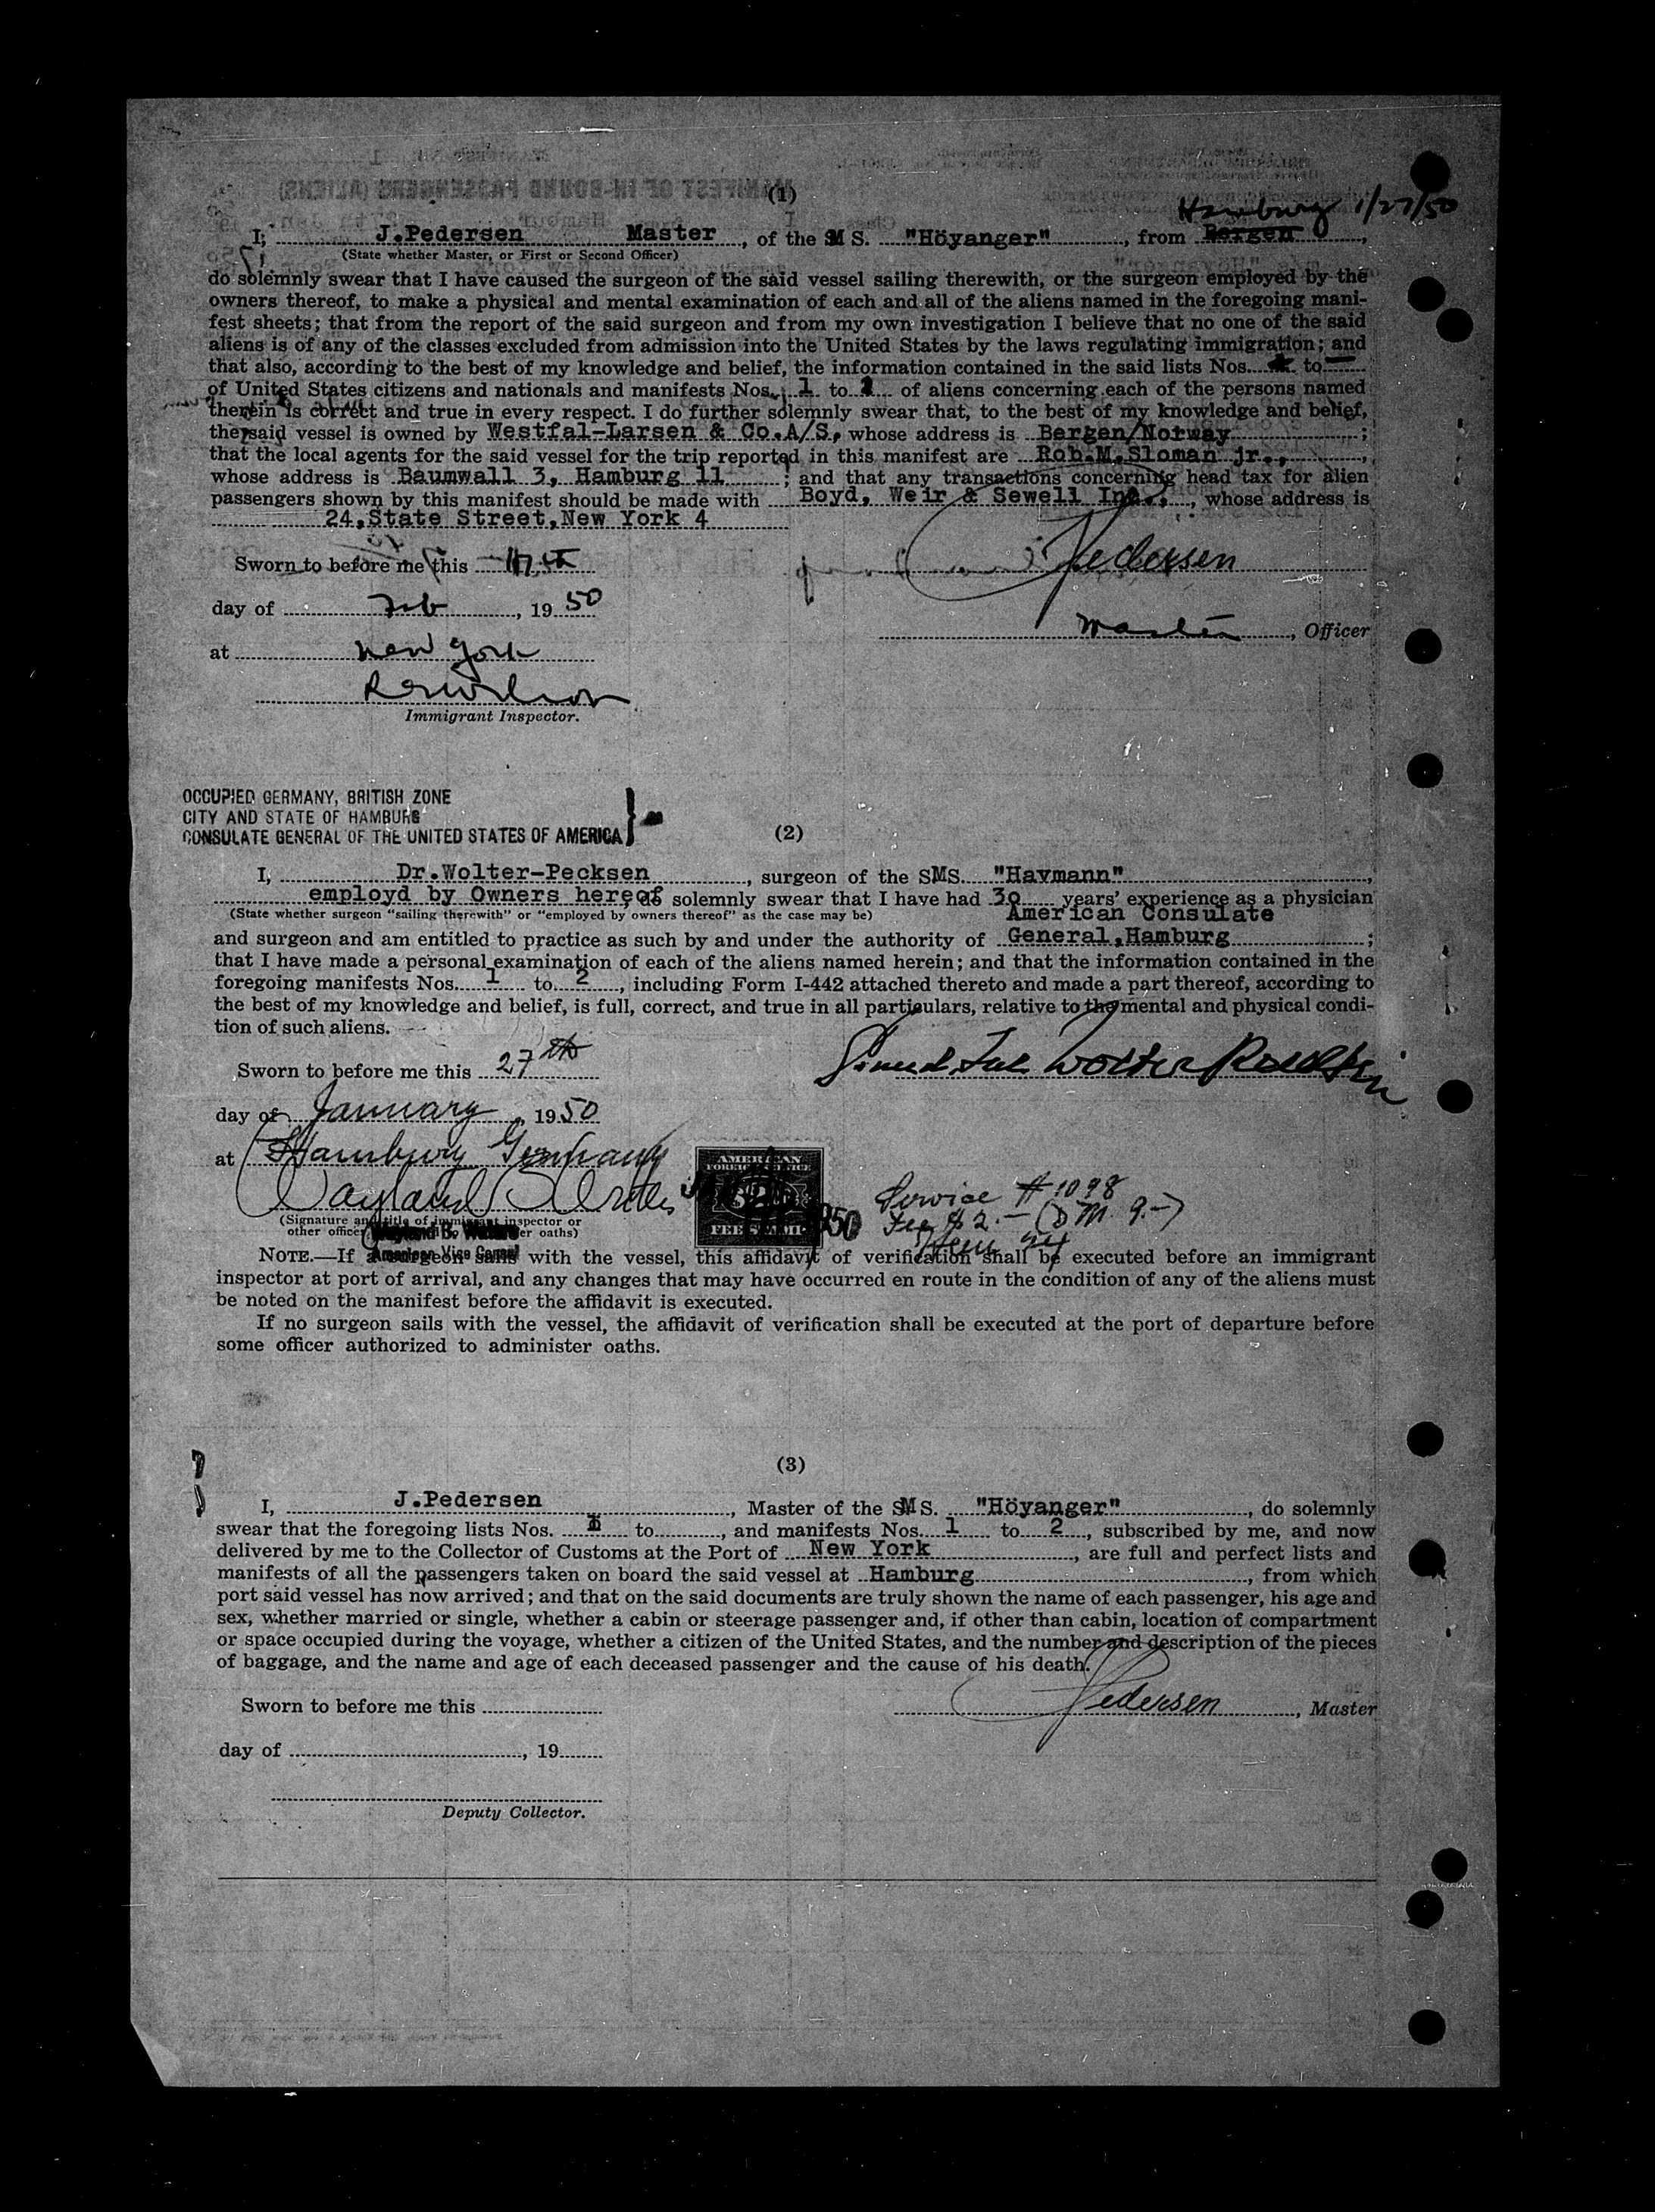 (1)
Hamburg 1/27/50
I, J.Pedersen Master, of the SM S. "Höyanger", from Bergen,
(State whether Master, or First or Second Officer)
do solemnly swear that I have caused the surgeon of the said vessel sailing therewith, or the surgeon employed by the
owners thereof, to make a physical and mental examination of each and all of the aliens named in the foregoing mani-
fest sheets; that from the report of the said surgeon and from my own investigation I believe that no one of the said
aliens is of any of the classes excluded from admission into the United States by the laws regulating immigration; and
that also, according to the best of my knowledge and belief, the information contained in the said lists Nos. to
of United States citizens and nationals and manifests Nos. 1 to of aliens concerning each of the persons named
therein is correct and true in every respect. I do further solemnly swear that, to the best of my knowledge and belief,
the said vessel is owned by Westfal-Larsen & Co.A/S, whose address is Bergen/Norway;
that the local agents for the said vessel for the trip reported in this manifest are Rob.M.Sloman jr.,
whose address is Baumwall 3, Hamburg 11; and that any transactions concerning head tax for alien
passengers shown by this manifest should be made with Boyd, Weir & Sewell Inc., whose address is
24,State Street,New York 4
Sworn to before me this
Pedersen
day of Feb, 19 50
Master, Officer
at New York
Immigrant Inspector.
OCCUPIED GERMANY, BRITISH ZONE
CITY AND STATE OF HAMBURG
CONSULATE GENERAL OF THE UNITED STATES OF AMERICA
(2)
I, Dr.Wolter-Pecksen, surgeon of the SMS. "Havmann",
employd by Owners hereof, do solemnly swear that I have had 30 years' experience as a physician
(State whether surgeon "sailing therewith" or "employed by owners thereof" as the case may be)
American Consulate
and surgeon and am entitled to practice as such by and under the authority of General,Hamburg;
that I have made a personal examination of each of the aliens named herein; and that the information contained in the
foregoing manifests Nos. 1 to 2, including Form I-442 attached thereto and made a part thereof, according to
the best of my knowledge and belief, is full, correct, and true in all particulars, relative to the mental and physical condi-
tion of such aliens.
Sworn to before me this 27th
day of January, 1950
at Hamburg Germany
AMERICAN
FOREIGN SERVICE
FEE STAMP
Service # 1098
Fee $2.— (DM. 9.—)
Item 24
(Signature and title of immigrant inspector or
other officer er oaths)
American Vice Consul
NOTE.—If a surgeon sails with the vessel, this affidavit of verification shall be executed before an immigrant
inspector at port of arrival, and any changes that may have occurred en route in the condition of any of the aliens must
be noted on the manifest before the affidavit is executed.
If no surgeon sails with the vessel, the affidavit of verification shall be executed at the port of departure before
some officer authorized to administer oaths.
(3)
I, J.Pedersen, Master of the SM S. "Höyanger", do solemnly
swear that the foregoing lists Nos. to, and manifests Nos. 1 to 2, subscribed by me, and now
delivered by me to the Collector of Customs at the Port of New York, are full and perfect lists and
manifests of all the passengers taken on board the said vessel at Hamburg, from which
port said vessel has now arrived; and that on the said documents are truly shown the name of each passenger, his age and
sex, whether married or single, whether a cabin or steerage passenger and, if other than cabin, location of compartment
or space occupied during the voyage, whether a citizen of the United States, and the number and description of the pieces
of baggage, and the name and age of each deceased passenger and the cause of his death.
Sworn to before me this
Pedersen, Master
day of, 19
Deputy Collector.